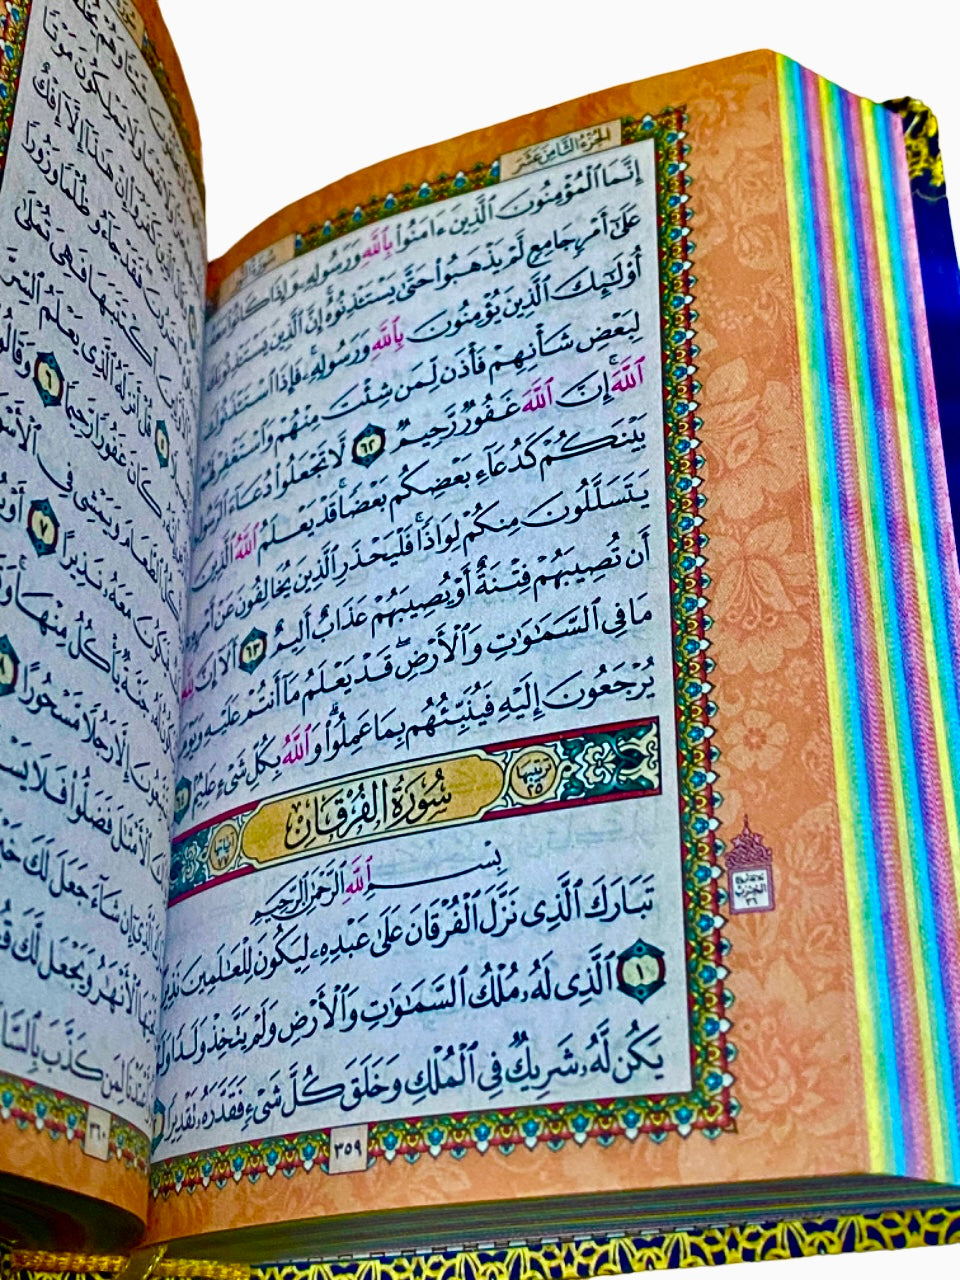 الجُزْءُ الثَّامِنَ عَشَرَ
إِنَّمَا ٱلْمُؤْمِنُونَ ٱلَّذِينَ ءَامَنُوا۟ بِٱللَّهِ وَرَسُولِهِۦ وَإِذَا كَانُوا۟ مَعَهُۥ
عَلَىٰٓ أَمْرٍ جَامِعٍ لَّمْ يَذْهَبُوا۟ حَتَّىٰ يَسْتَـْٔذِنُوهُ ۚ إِنَّ ٱلَّذِينَ يَسْتَـْٔذِنُونَكَ
أُو۟لَـٰٓئِكَ ٱلَّذِينَ يُؤْمِنُونَ بِٱللَّهِ وَرَسُولِهِۦ ۚ فَإِذَا ٱسْتَـْٔذَنُوكَ
لِبَعْضِ شَأْنِهِمْ فَأْذَن لِّمَن شِئْتَ مِنْهُمْ وَٱسْتَغْفِرْ لَهُمُ
ٱللَّهَ ۚ إِنَّ ٱللَّهَ غَفُورٌ رَّحِيمٌ ٦٢ لَّا تَجْعَلُوا۟ دُعَآءَ ٱلرَّسُولِ
بَيْنَكُمْ كَدُعَآءِ بَعْضِكُم بَعْضًا ۚ قَدْ يَعْلَمُ ٱللَّهُ ٱلَّذِينَ
يَتَسَلَّلُونَ مِنكُمْ لِوَاذًا ۚ فَلْيَحْذَرِ ٱلَّذِينَ يُخَالِفُونَ عَنْ أَمْرِهِۦٓ
أَن تُصِيبَهُمْ فِتْنَةٌ أَوْ يُصِيبَهُمْ عَذَابٌ أَلِيمٌ ٦٣ أَلَآ إِنَّ لِلَّهِ
مَا فِى ٱلسَّمَـٰوَٰتِ وَٱلْأَرْضِ ۖ قَدْ يَعْلَمُ مَآ أَنتُمْ عَلَيْهِ وَيَوْمَ
يُرْجَعُونَ إِلَيْهِ فَيُنَبِّئُهُم بِمَا عَمِلُوا۟ ۗ وَٱللَّهُ بِكُلِّ شَىْءٍ عَلِيمٌۢ ٦٤
ترتيبها ٢٥ سُورَةُ الفُرْقَان
بِسْمِ ٱللَّهِ ٱلرَّحْمَـٰنِ ٱلرَّحِيمِ
تَبَارَكَ ٱلَّذِى نَزَّلَ ٱلْفُرْقَانَ عَلَىٰ عَبْدِهِۦ لِيَكُونَ لِلْعَـٰلَمِينَ نَذِيرًا
١ ٱلَّذِى لَهُۥ مُلْكُ ٱلسَّمَـٰوَٰتِ وَٱلْأَرْضِ وَلَمْ يَتَّخِذْ وَلَدًا وَلَمْ
يَكُن لَّهُۥ شَرِيكٌ فِى ٱلْمُلْكِ وَخَلَقَ كُلَّ شَىْءٍ فَقَدَّرَهُۥ تَقْدِيرًا
٣٥٩
وَهُمْ
وَلَا يَمْلِكُونَ مَوْتًا
إِنْ هَـٰذَآ إِلَّآ إِفْكٌ
فَقَدْ جَآءُو ظُلْمًا وَزُورًا
ٱكْتَتَبَهَا فَهِىَ تُمْلَىٰ
قُلْ أَنزَلَهُ ٱلَّذِى يَعْلَمُ ٱلسِّرَّ
كَانَ غَفُورًا رَّحِيمًا ٦ وَقَالُوا۟
ٱلطَّعَامَ وَيَمْشِى فِى ٱلْأَسْوَاقِ
فَيَكُونَ مَعَهُۥ نَذِيرًا ٧ أَوْ
جَنَّةٌ يَأْكُلُ مِنْهَا ۚ وَقَالَ
إِلَّا رَجُلًا مَّسْحُورًا ٨
ٱلْأَمْثَـٰلَ فَضَلُّوا۟ فَلَا
ٱلَّذِىٓ إِن شَآءَ جَعَلَ لَكَ خَيْرًا
ٱلْأَنْهَـٰرُ وَيَجْعَل لَّكَ
لِمَن كَذَّبَ بِٱلسَّاعَةِ
٣٦٠